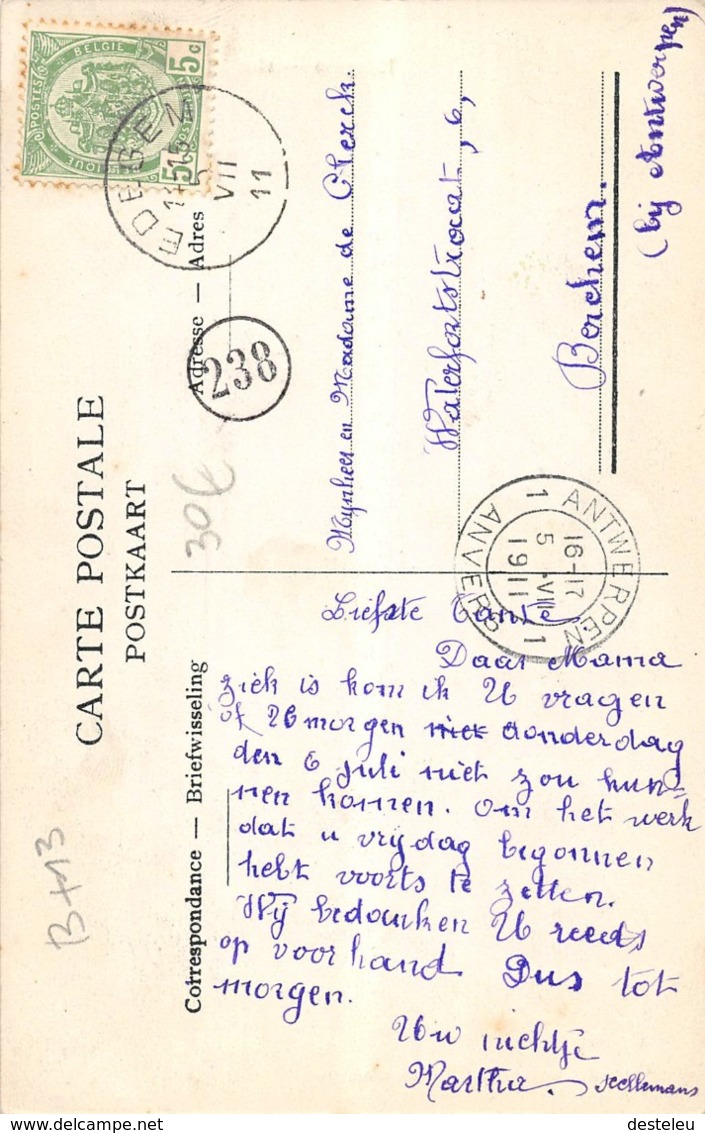 CARTE POSTALE
POSTKAART
Correspondance — Briefwisseling
Adresse — Adres
BELGIE
POSTES
5c
5c
EDEGEM
15
VII
11
238
30£
B+13
Mynheer en Madame de Clerck.
Waterfortstraat, 6,
Berchem.
(bij Antwerpen)
ANTWERPEN 1
16-17
5 VII
1911
ANVERS 1
Liefste Tante.
Daar Mama
ziek is kom ik U vragen
of U morgen niet donderdag
den 6 juli niet zou kun=
nen komen. om het werk
dat u vrijdag begonnen
hebt voorts te zetten.
Wij bedanken U reeds
op voorhand Dus tot
morgen.
Uw nichtje
Martha.
desteleu